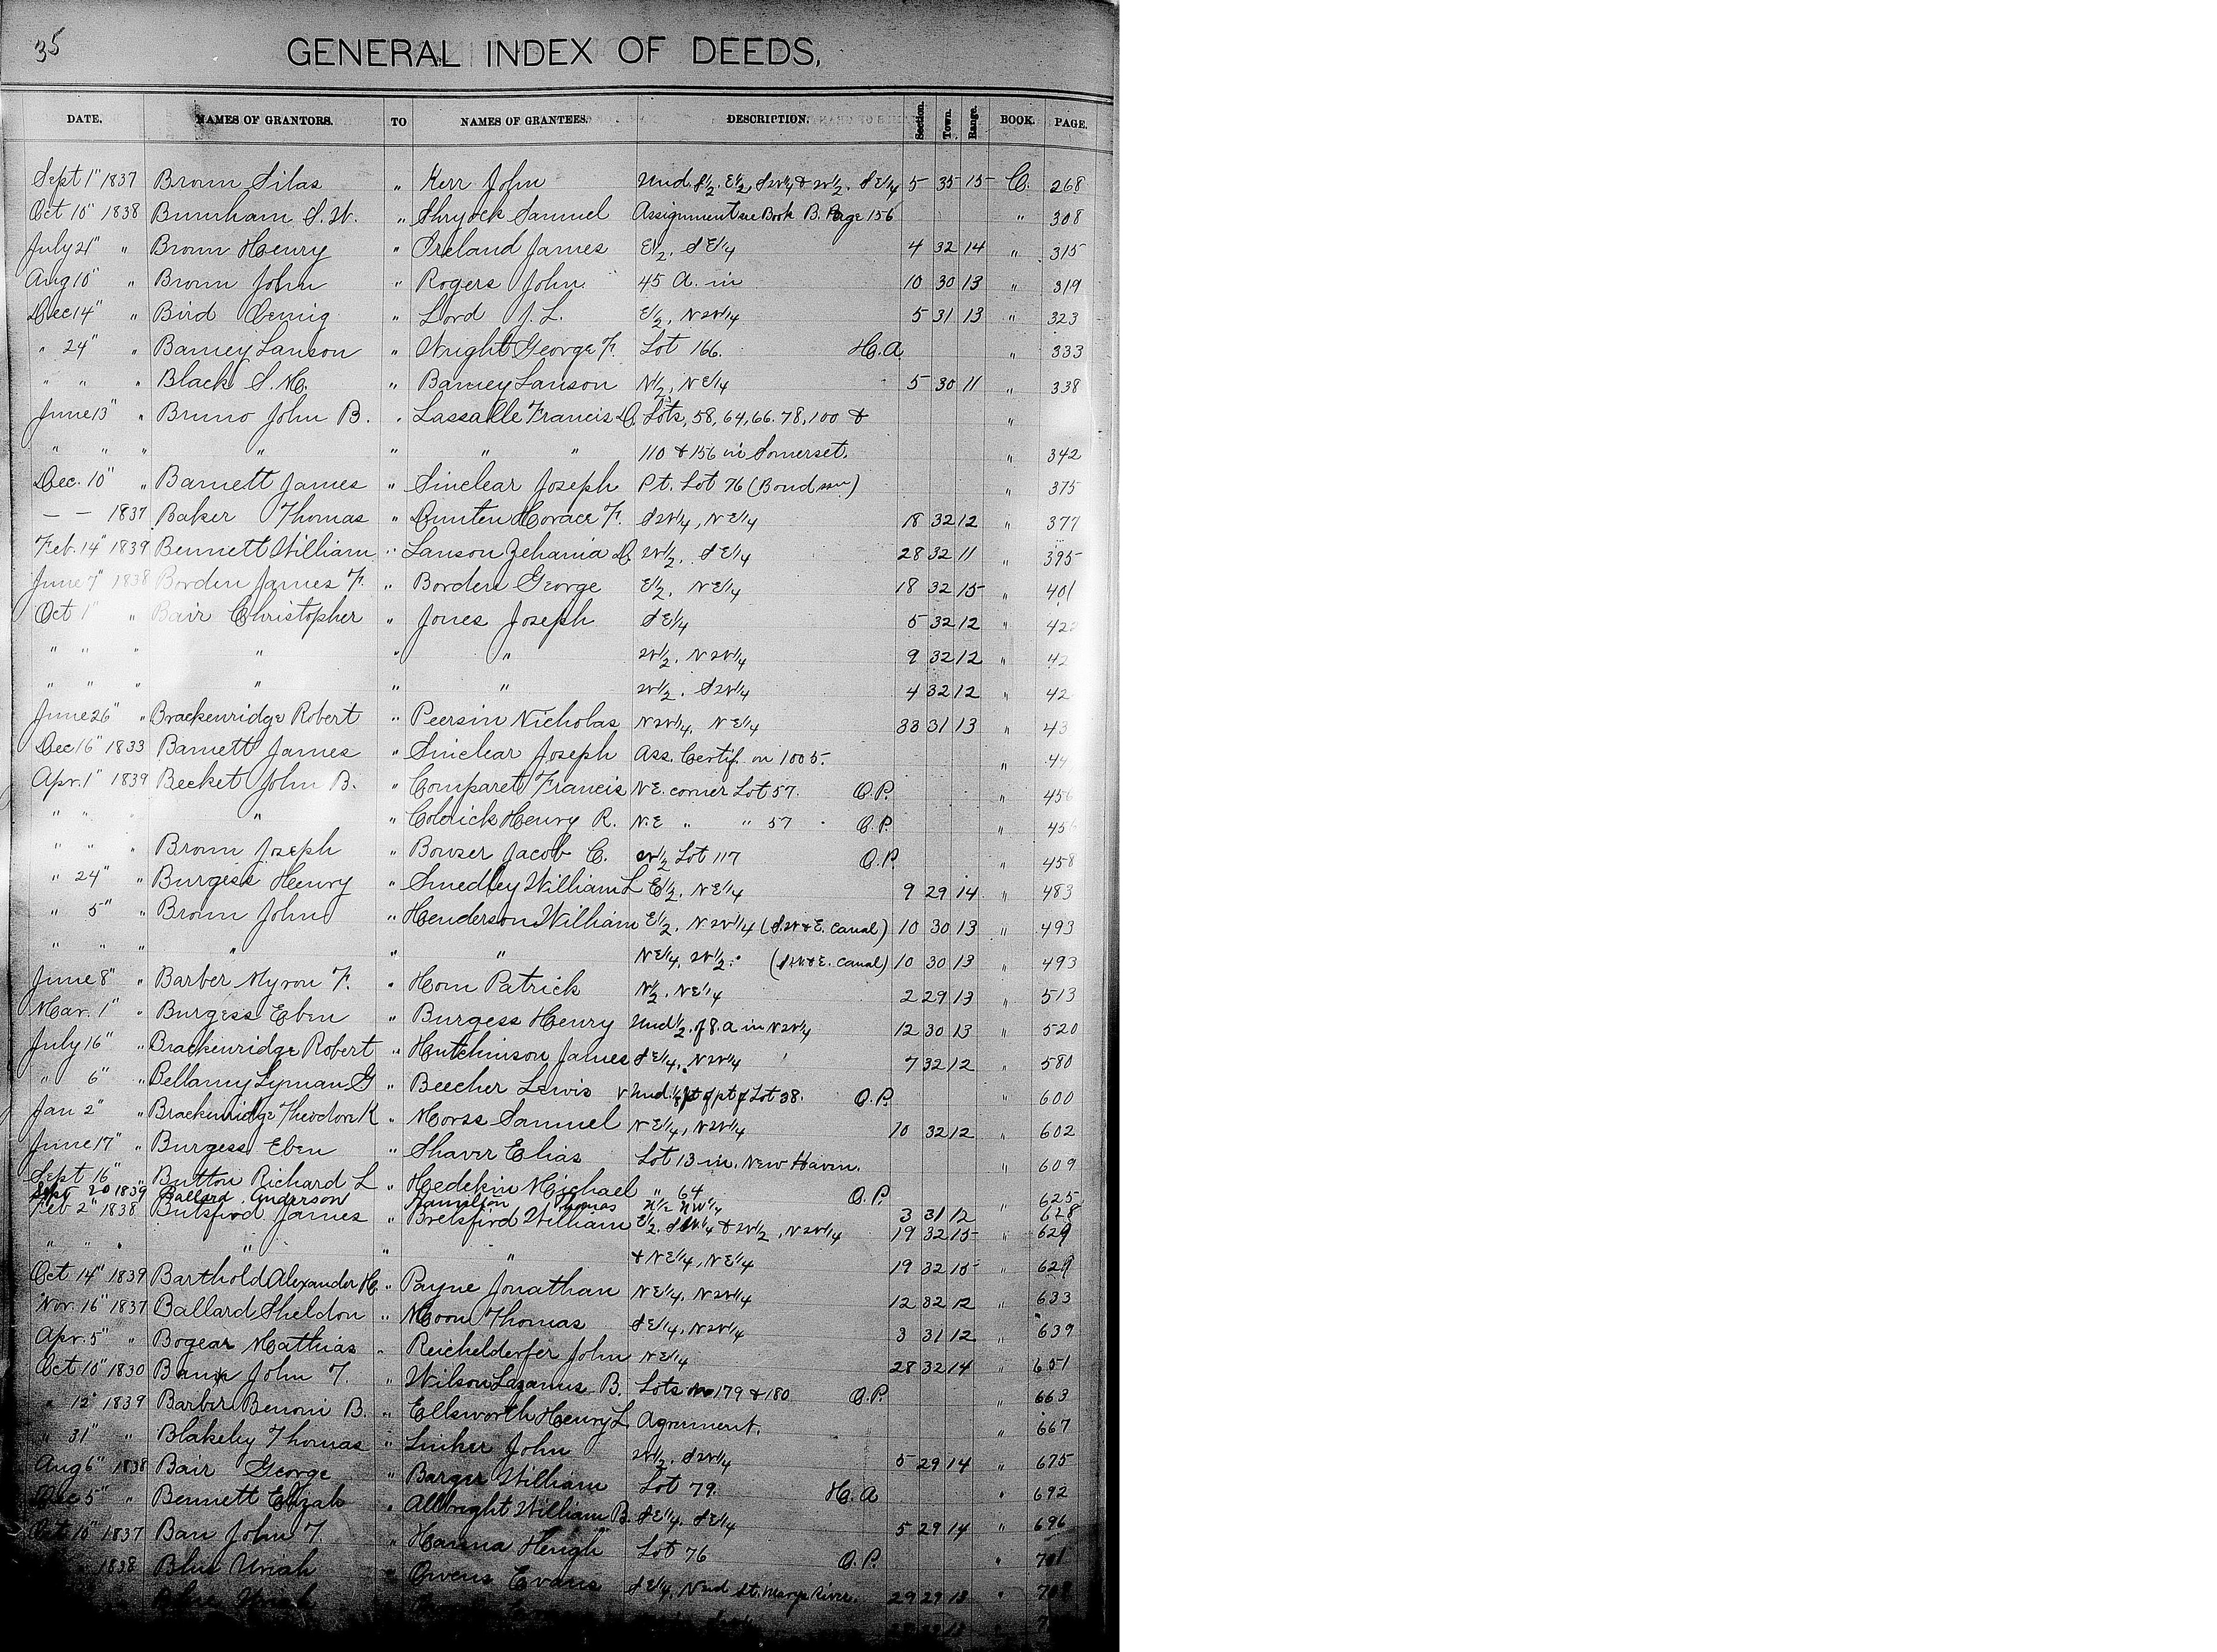 35
GENERAL INDEX OF DEEDS.
DATE. NAMES OF GRANTORS. TO NAMES OF GRANTEES. DESCRIPTION. Section. Town. Range. BOOK. PAGE.
Sept 1" 1837 Brown Silas " Kerr John Und. S1/2. E1/2, SW1/4 & W1/2. SE1/4 5 35 15 C. 268
Oct 10" 1838 Burnham S. W. " Shryock Samuel Assignment see Book B. Page 156 " 308
July 21" " Brown Henry " Ireland James E1/2. SE1/4 4 32 14 " 315
Aug 10" " Brown John " Rogers John 45 A. in 10 30 13 " 319
Dec 14" " Bird " Lord J. L. E1/2, NW1/4 5 31 13 " 323
" 24" " Barney Lanson " Wright George F. Lot 166. H.A. " 333
" " " Black S. M. " Barney Lanson N1/2, NE1/4 5 30 11 " 338
June 13" " Bruno John B. " Lassalle Francis D. Lots, 58, 64, 66. 78, 100 & "
" " " " " " " 110 & 156 in Somerset. " 342
Dec. 10" " Barnett James " Sinclear Joseph Pt. Lot 76 (Bond ) " 375
— — 1837 Baker Thomas " Dunten Horace F. SW1/4, NE1/4 18 32 12 " 377
Feb. 14" 1839 Bennett William " Lanson Zehania D. W1/2. SE1/4 28 32 11 " 395
June 7" 1838 Borden James F. " Borden George E1/2. NE1/4 18 32 15 " 401
Oct 1" " Bair Christopher " Jones Joseph SE1/4 5 32 12 " 422
" " " " " " W1/2. NW1/4 9 32 12 " 42
" " " " " " W1/2. SW1/4 4 32 12 " 42
June 26" " Brackenridge Robert " Peersin Nicholas NW1/4, NE1/4 33 31 13 " 43
Dec 16" 1833 Barnett James " Sinclear Joseph Ass. Certif. on 1005. " 44
Apr. 1" 1839 Becket John B. " Comparet Francis NE. corner Lot 57. O.P. " 456
" " " " " Colerick Henry R. N.E " " 57 O.P. " 456
" " " Brown Joseph " Bowser Jacob C. W1/2 Lot 117 O.P. " 458
" 24" " Burgess Henry " Smedley William L E1/2. NE1/4 9 29 14 " 483
" 5" " Brown John " Henderson William E1/2. NW1/4 (S.W & E. Canal) 10 30 13 " 493
" " " " " " NE1/4, W1/2. (S.W & E. Canal) 10 30 13 " 493
June 8" " Barber Myron F. " Horn Patrick N1/2. NE1/4 2 29 13 " 513
Mar. 1" " Burgess Eben " Burgess Henry Und 1/2. of 8. a in NW1/4 12 30 13 " 520
July 16" " Brackenridge Robert " Hutchinson James SE1/4. NW1/4 7 32 12 " 580
" 6" " Bellamy Lyman G " Beecher Lewis Und. 1/8 pt of pt of Lot 38. O.P. " 600
Jan 2" " Brackenridge Theodore K " Morss Samuel NE1/4, NW1/4 10 32 12 " 602
June 17" " Burgess Eben " Shaver Elias Lot 13 in. New Haven. " 609
Sept 16" " Button Richard L " Hedekin Michael " 64 O.P. " 625
Sept 20 1839 Ballard Anderson Hamilton Thomas N1/2 NW1/4 3 31 12 628
Feb 2" 1838 Butsford James " Bretsford William E1/2. SW1/4 & W1/2, NW1/4 19 32 15 " 629
" " " " " " & NE1/4, NE1/4 19 32 15 " 629
Oct 14" 1839 Barthold Alexander H. " Payne Jonathan NE1/4. NW1/4 12 32 12 " 633
Nov. 16" 1837 Ballard Sheldon " Moon Thomas SE1/4. NW1/4 3 31 12 " 639
Apr. 5" " Bogear Mathias " Reichelderfer John NE1/4 28 32 14 " 651
Oct 10" 1830 John T. " Wilson Lazarus B. Lots No 179 & 180 O.P. " 663
" 12" 1839 Barber Benoni B. " Ellsworth Henry L Agreement. " 667
" 31" " Blakeley Thomas " Linker John W1/2. SW1/4 5 29 14 " 675
Aug 6" 1838 Bair George " Barger William Lot 79. H.A " 692
Dec 5" " Bennett Elizah " Allbright William B. SE1/4. SE1/4 5 29 14 " 696
Oct 10" 1837 Barr John T. " Hanna Hugh Lot 76 O.P. " 701
1838 Blue Uriah " Owens Evans SE1/4. N end St. Marys River. 29 29 13 "
Blue Uriah